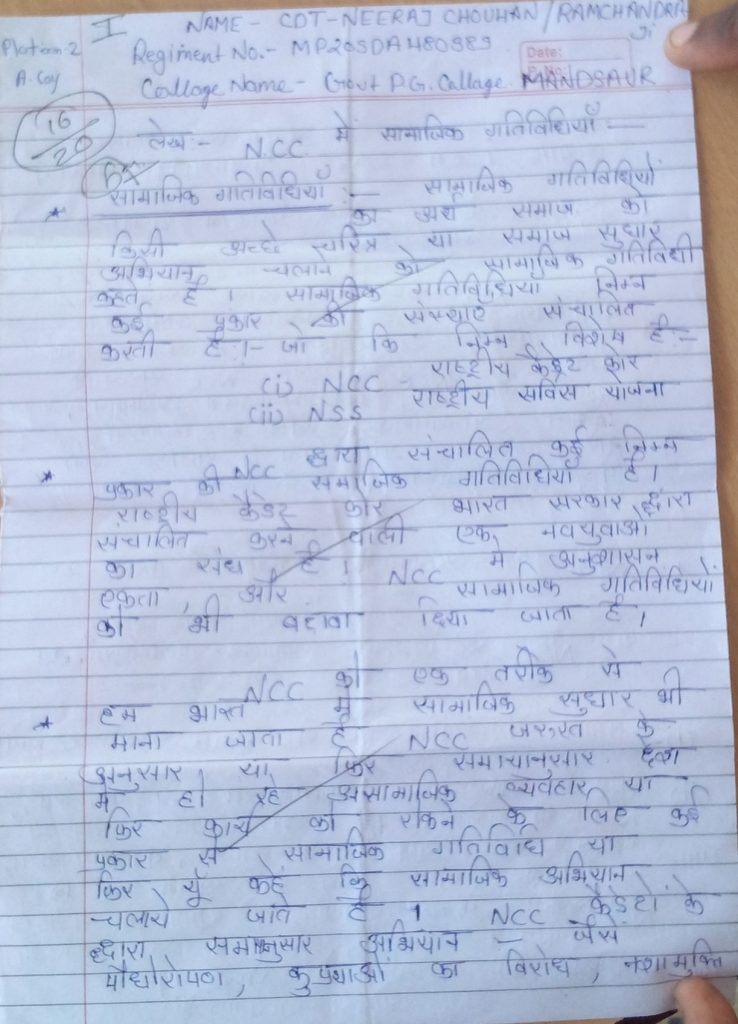 I
NAME - CDT-NEERAJ CHOUHAN / RAMCHANDRA Ji
Platoon-2
A. Coy
Regiment No.- MP20SDA480589
Date:
Callage Name - Govt P.G. Callage. MANDSAUR
16/20
लेख :- NCC में सामाजिक गतिविधियाँ :-
सामाजिक गतिविधियाँ :- सामाजिक गतिविधियों
का अर्थ समाज को
किसी अच्छे चरित्र या समाज सुधार
अभियान चलाने को सामाजिक गतिविधी
कहते है। सामाजिक गतिविधिया निम्न
कई प्रकार की संस्थाए संचालित
करती है।- जो कि निम्न विशेष है:-
(i) NCC - राष्ट्रीय कैडेट कोर
(ii) NSS राष्ट्रीय सर्विस योजना
NCC द्वारा संचालित कई निम्न
प्रकार की समाजिक गतिविधियाँ है।
राष्ट्रीय कैडेट कोर भारत सरकार द्वारा
संचालित करने वाली एक नवयुवाओ
का संघ है। NCC में अनुशासन
एकता, और सामाजिक गतिविधियों
को भी बढावा दिया जाता है।
NCC को एक तरीके से
हम भारत में सामाजिक सुधार भी
माना जाता है NCC जरुरत के
अनुसार या फिर समायानुसार देश
मे हो रहे असामाजिक व्यवहार या
फिर कार्य को रोकने के लिए कई
प्रकार से सामाजिक गतिविधि या
फिर यू कहे कि सामाजिक अभियान
चलाये जाते है। NCC कैडेटो के
द्वारा समानुसार अभियान - जैसे
पौधोरोपण, कुप्रथाओ का विरोध, नशामुक्ति